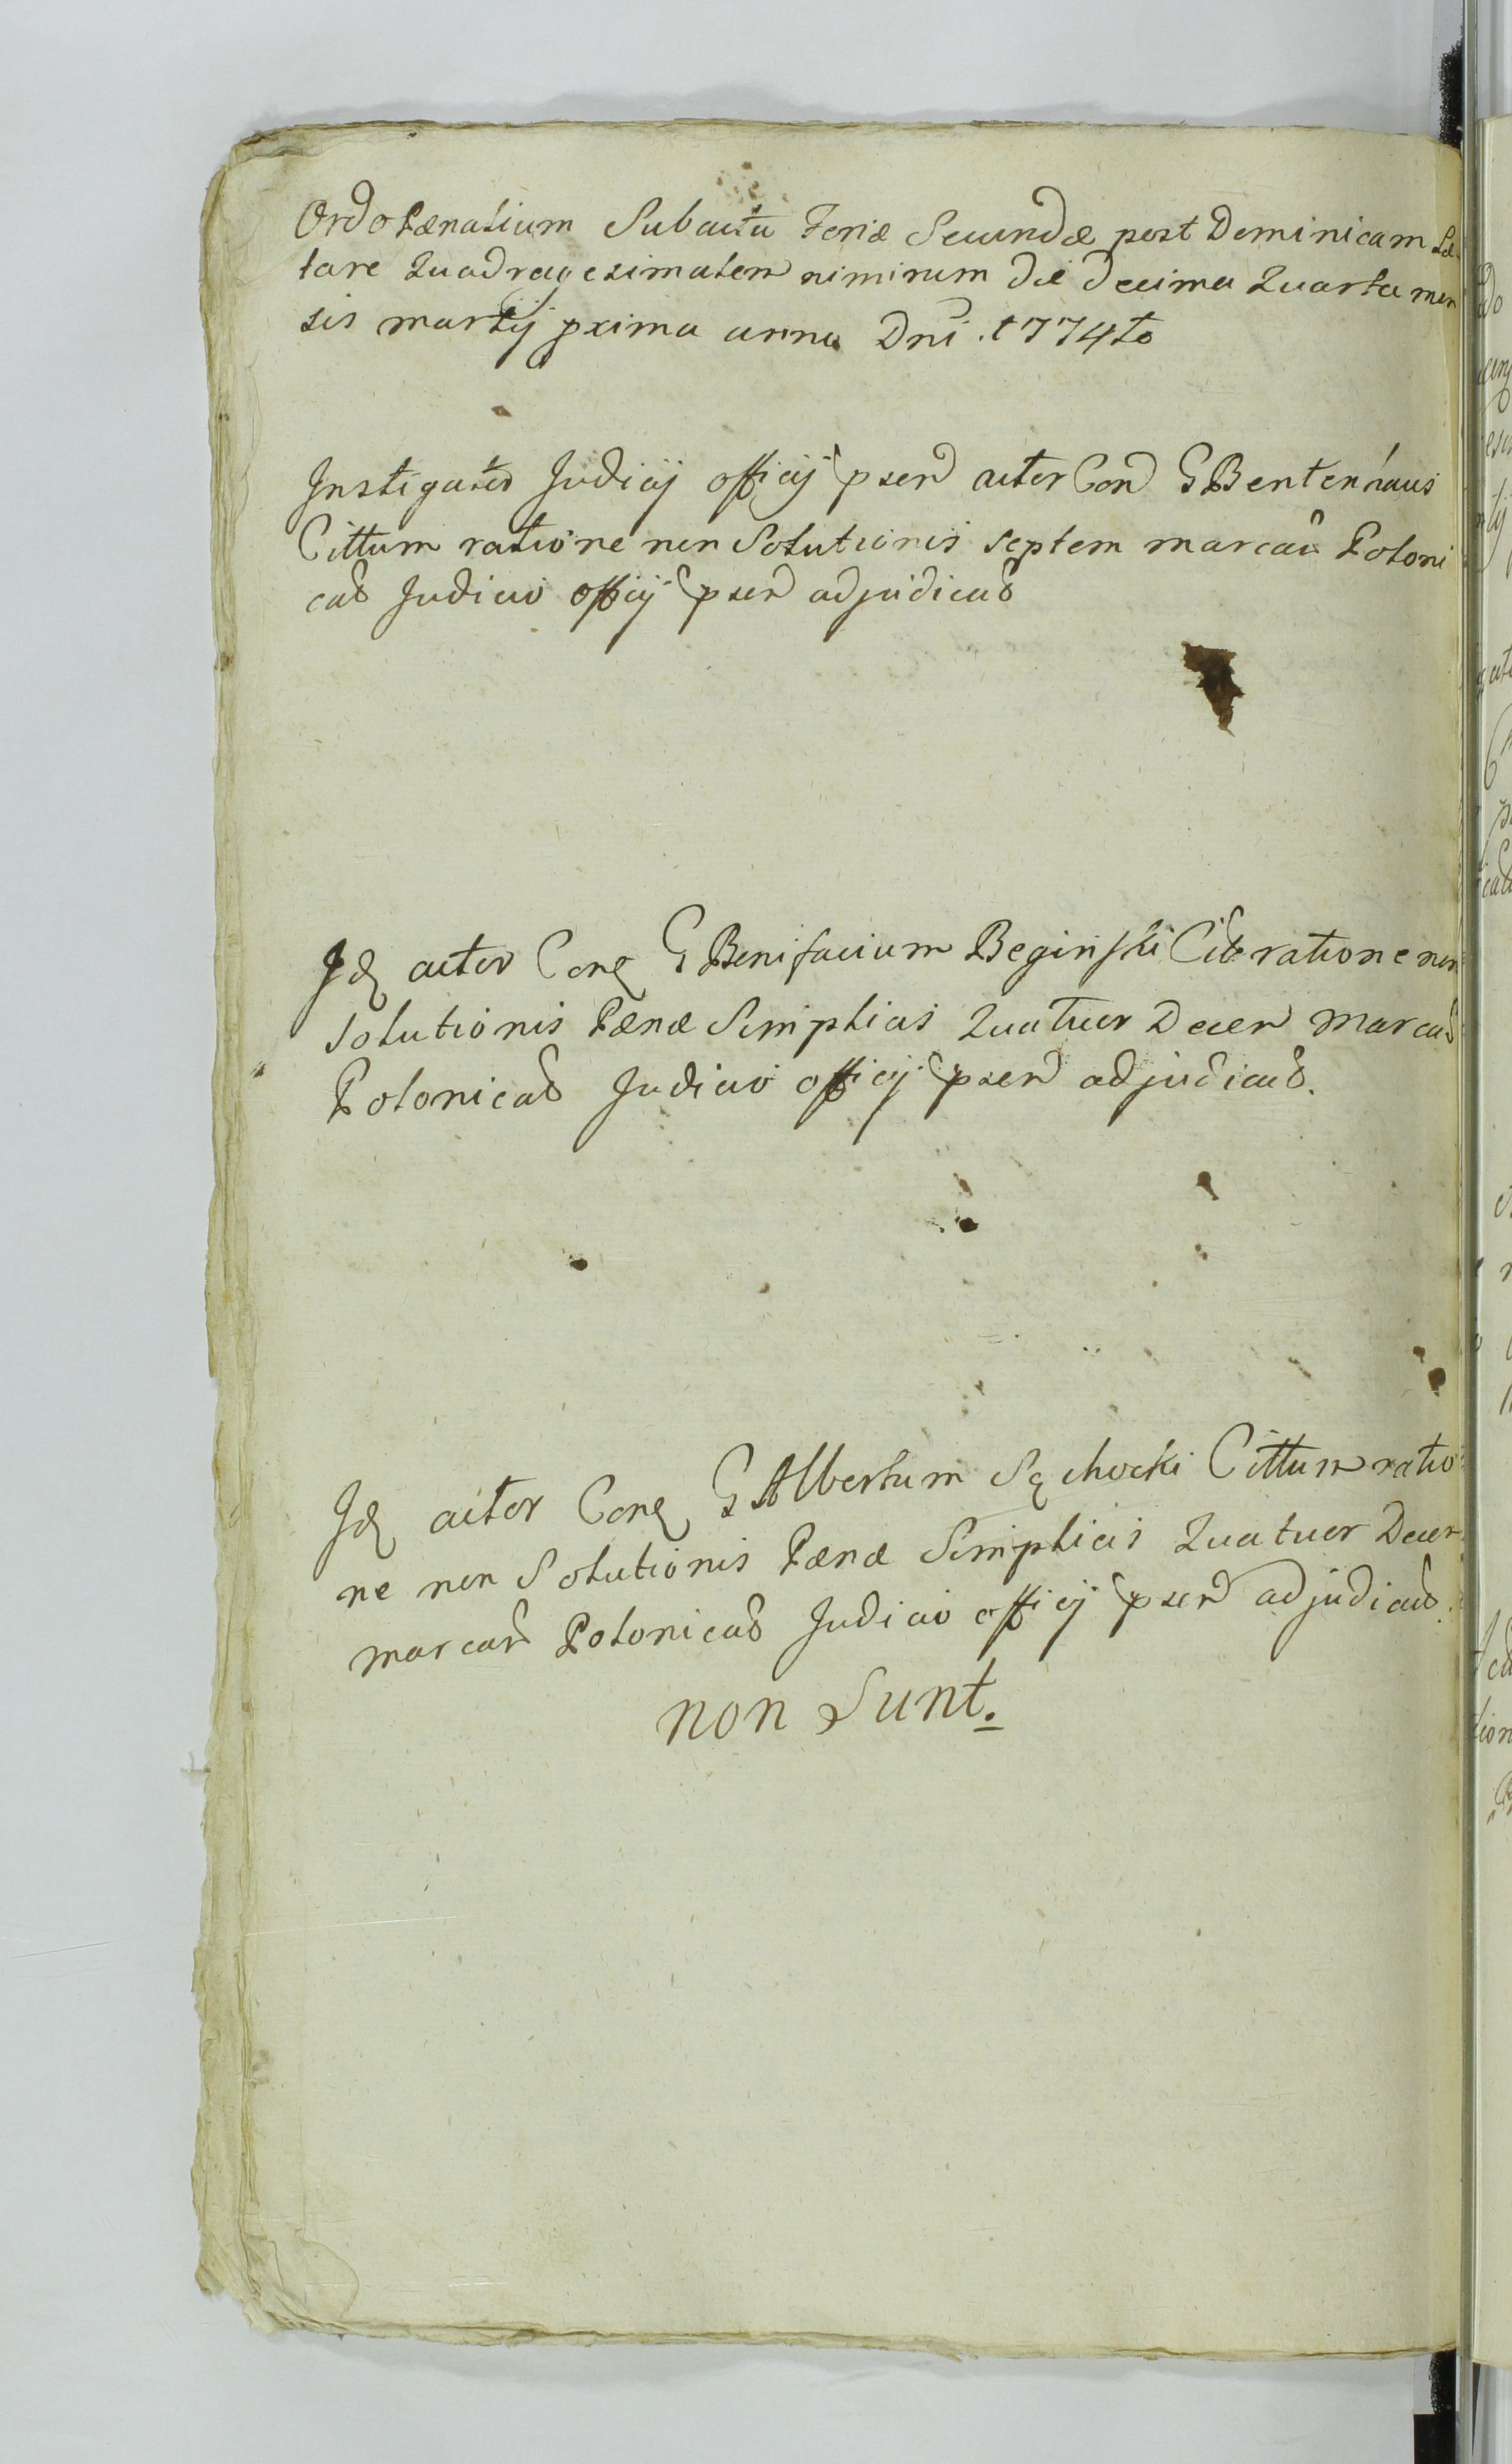 Ordo Pænalium Sub actu Feriæ Secundæ post Dominicam Læ
tare Quadragesimalem nimirum die decima Quarta men
sis martij pxima anno Dni. 1774to
Instigator Judicij officij psen actor Con G Bentenhaus
Cittum ratione non Solutionis septem marcar Poloni
cal Judicio officij psen adjudical
Id actor Con G Bonifacium Beginski Cit ratione non
solutionis Pænæ Simplicis Quatuor Decem marcar
Polonical Judicio officij psen adjudical.
Id actor Con G Albertum Sęchocki Cittum ratio
ne non Solutionis Pænæ Simplicis Quatuor Decem
marcar Polonical Judicio officij psen adjudical.
non Sunt.